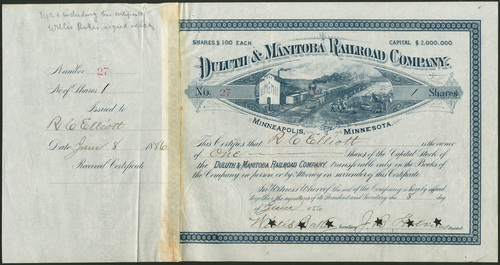 including this certificate
Willis Baker signed
Number 27
No of Shares 1
Issued to
R C Elliott
Date June 8 1886
Received Certificate
SHARES $100 EACH. CAPITAL $2,000,000
DULUTH & MANITOBA RAILROAD COMPANY.
No. 27 1 Shares
MINNEAPOLIS, MINNESOTA.
This Certifies that R C Elliott is the owner
of One Shares of the Capital Stock of
the DULUTH & MANITOBA RAILROAD COMPANY, transferable only on the Books of
the Company in person or by Attorney on surrender of this Certificate.
In Witness Whereof the seal of the Company is hereby affixed
together the signatures of its President and Secretary this 8 day
June 1886
Willis Baker Secretary President